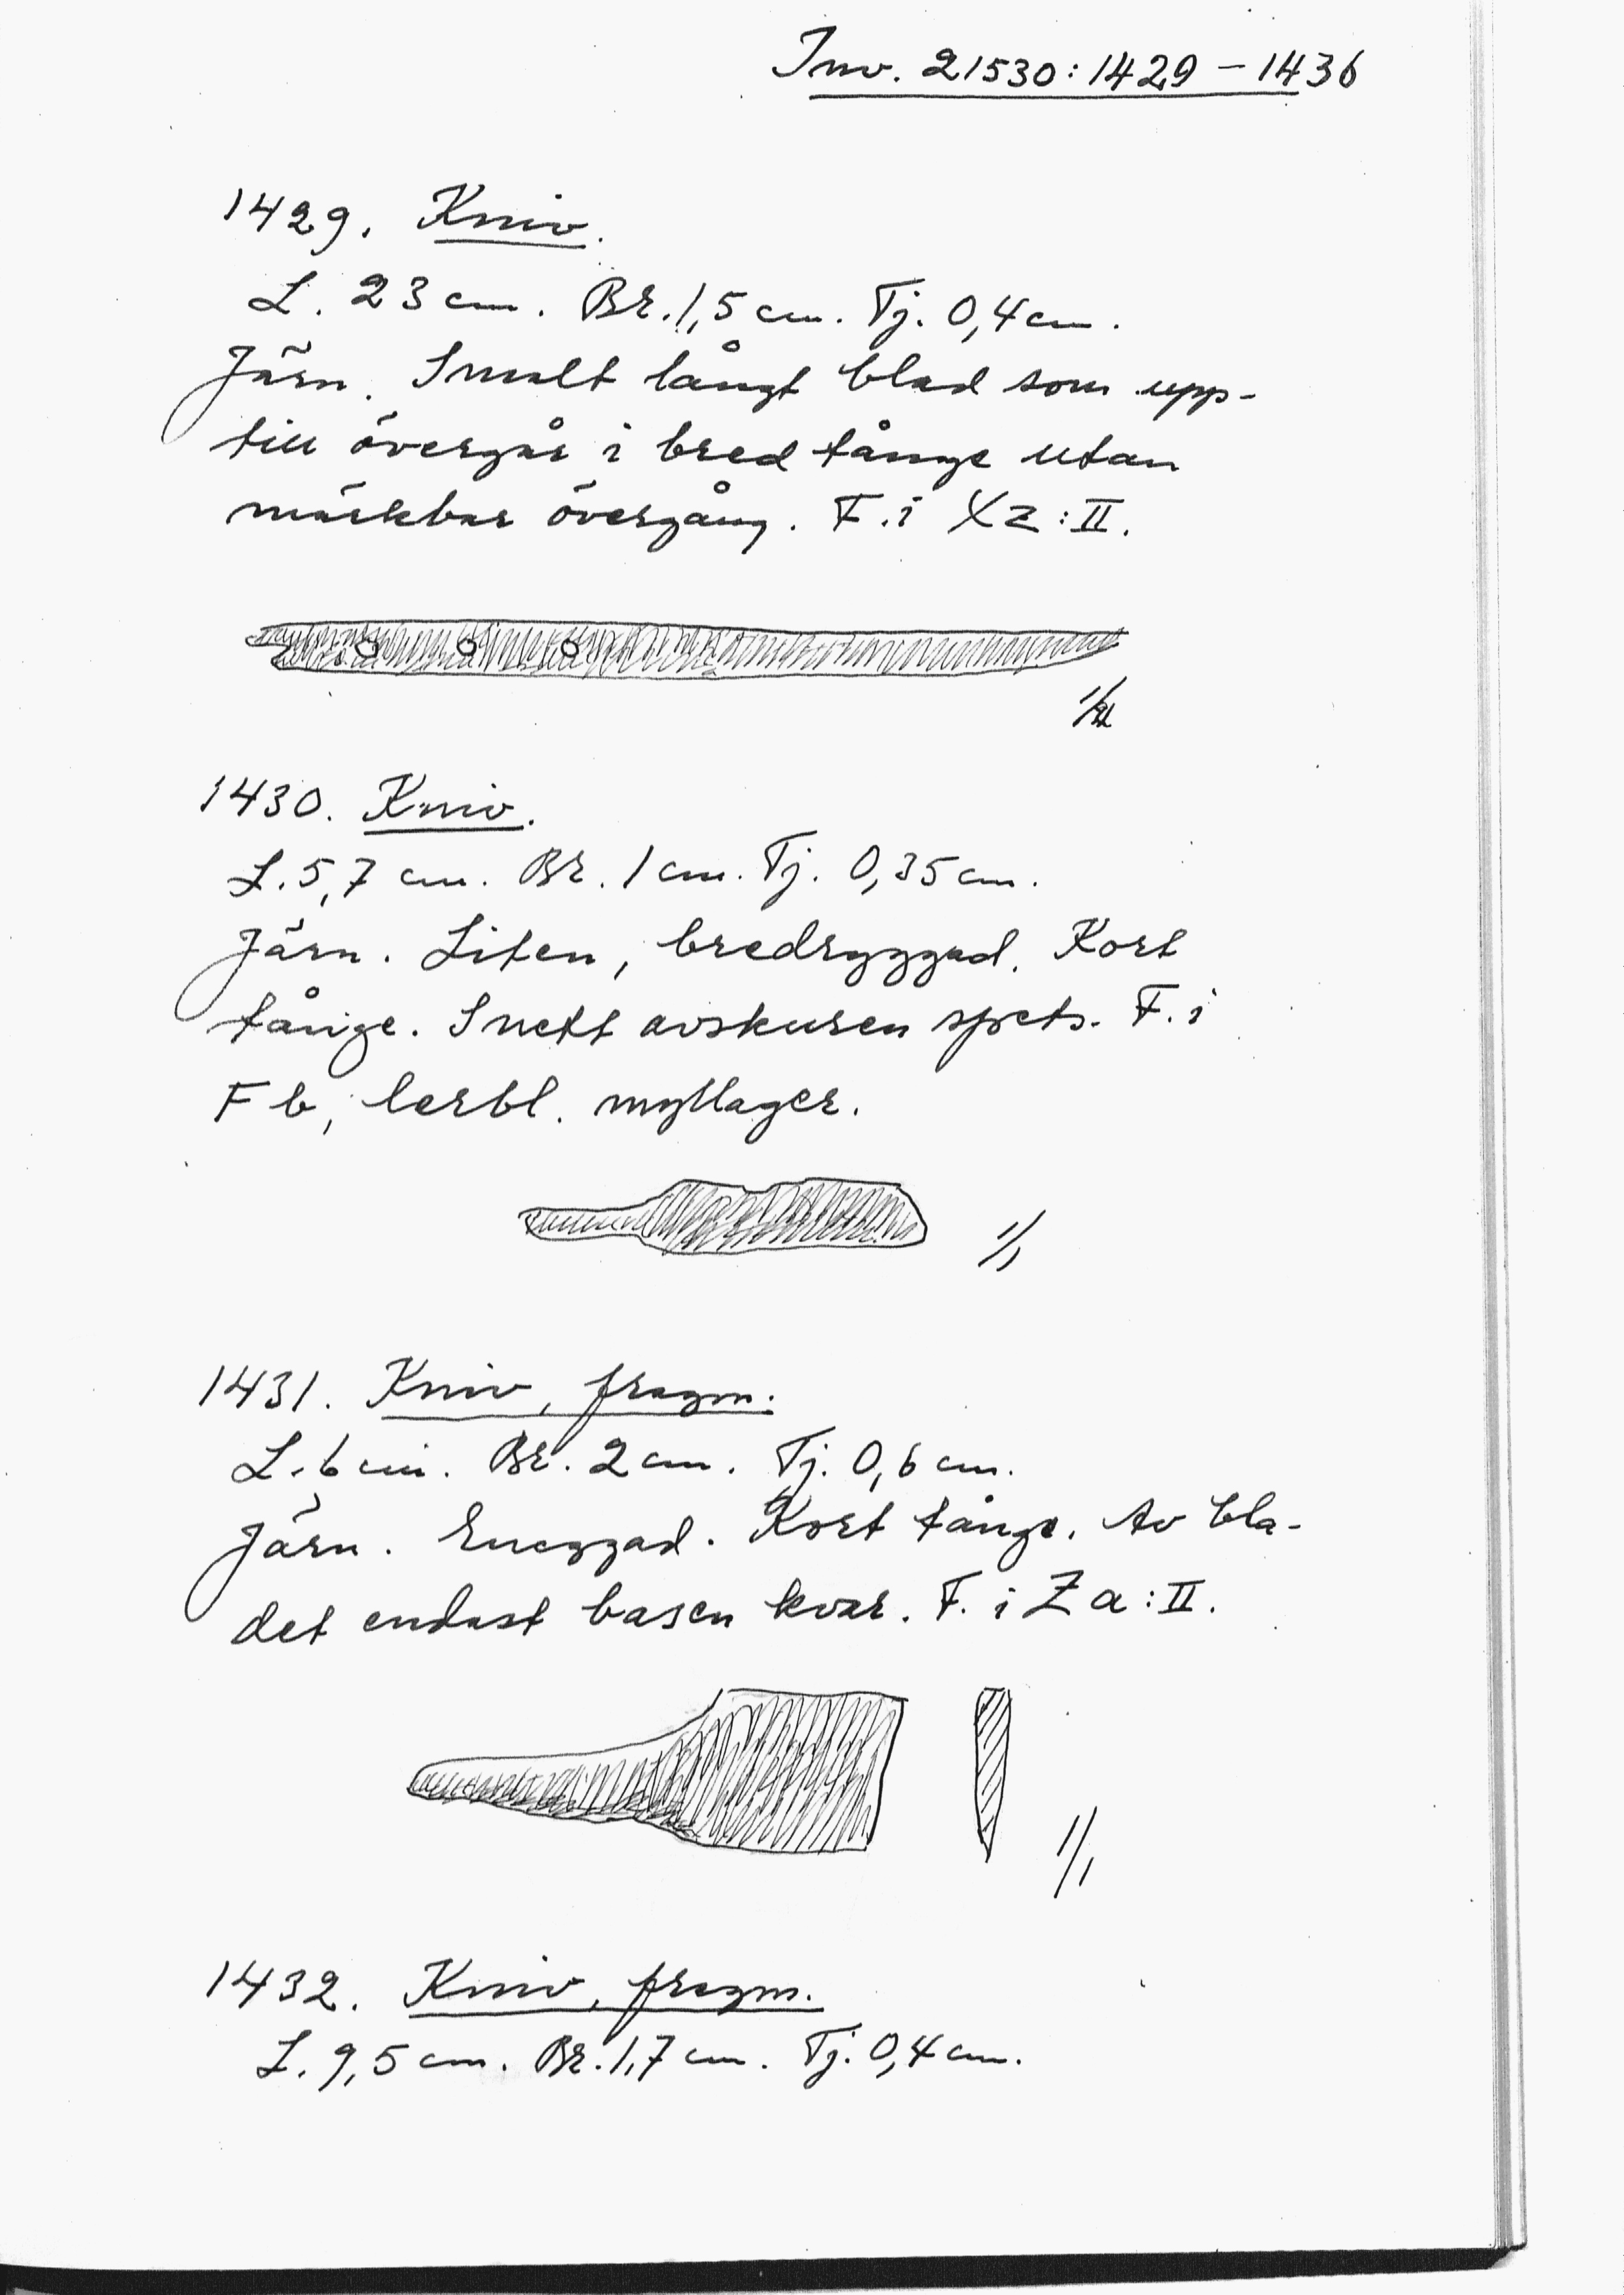 Inv. 21530:1429-1436
1429. Kniv.
L. 23 cm. Br. 1,5 cm. Tj. 0,4 cm.
Järn. Smalt långt blad som upp-
till övergår i bred tånge utan
märkbar övergång. F. i Xz:II.
1430. Kniv.
L. 5,7 cm. Br. 1 cm. Tj. 0,35 cm.
Järn. Liten, bredryggad. Kort
tånge. Snett avskuren spets. F. i
F b, lerbl. myllager.
1/1
1431. Kniv, fragm.
L. 6 cm. Br. 2 cm. Tj. 0,6 cm.
Järn. Eneggad. Kort tånge. Av bla-
det endast basen kvar. F. i Z a:II.
1/1
1432. Kniv, fragm.
L. 9,5 cm. Br. 1,7 cm. Tj. 0,4 cm.